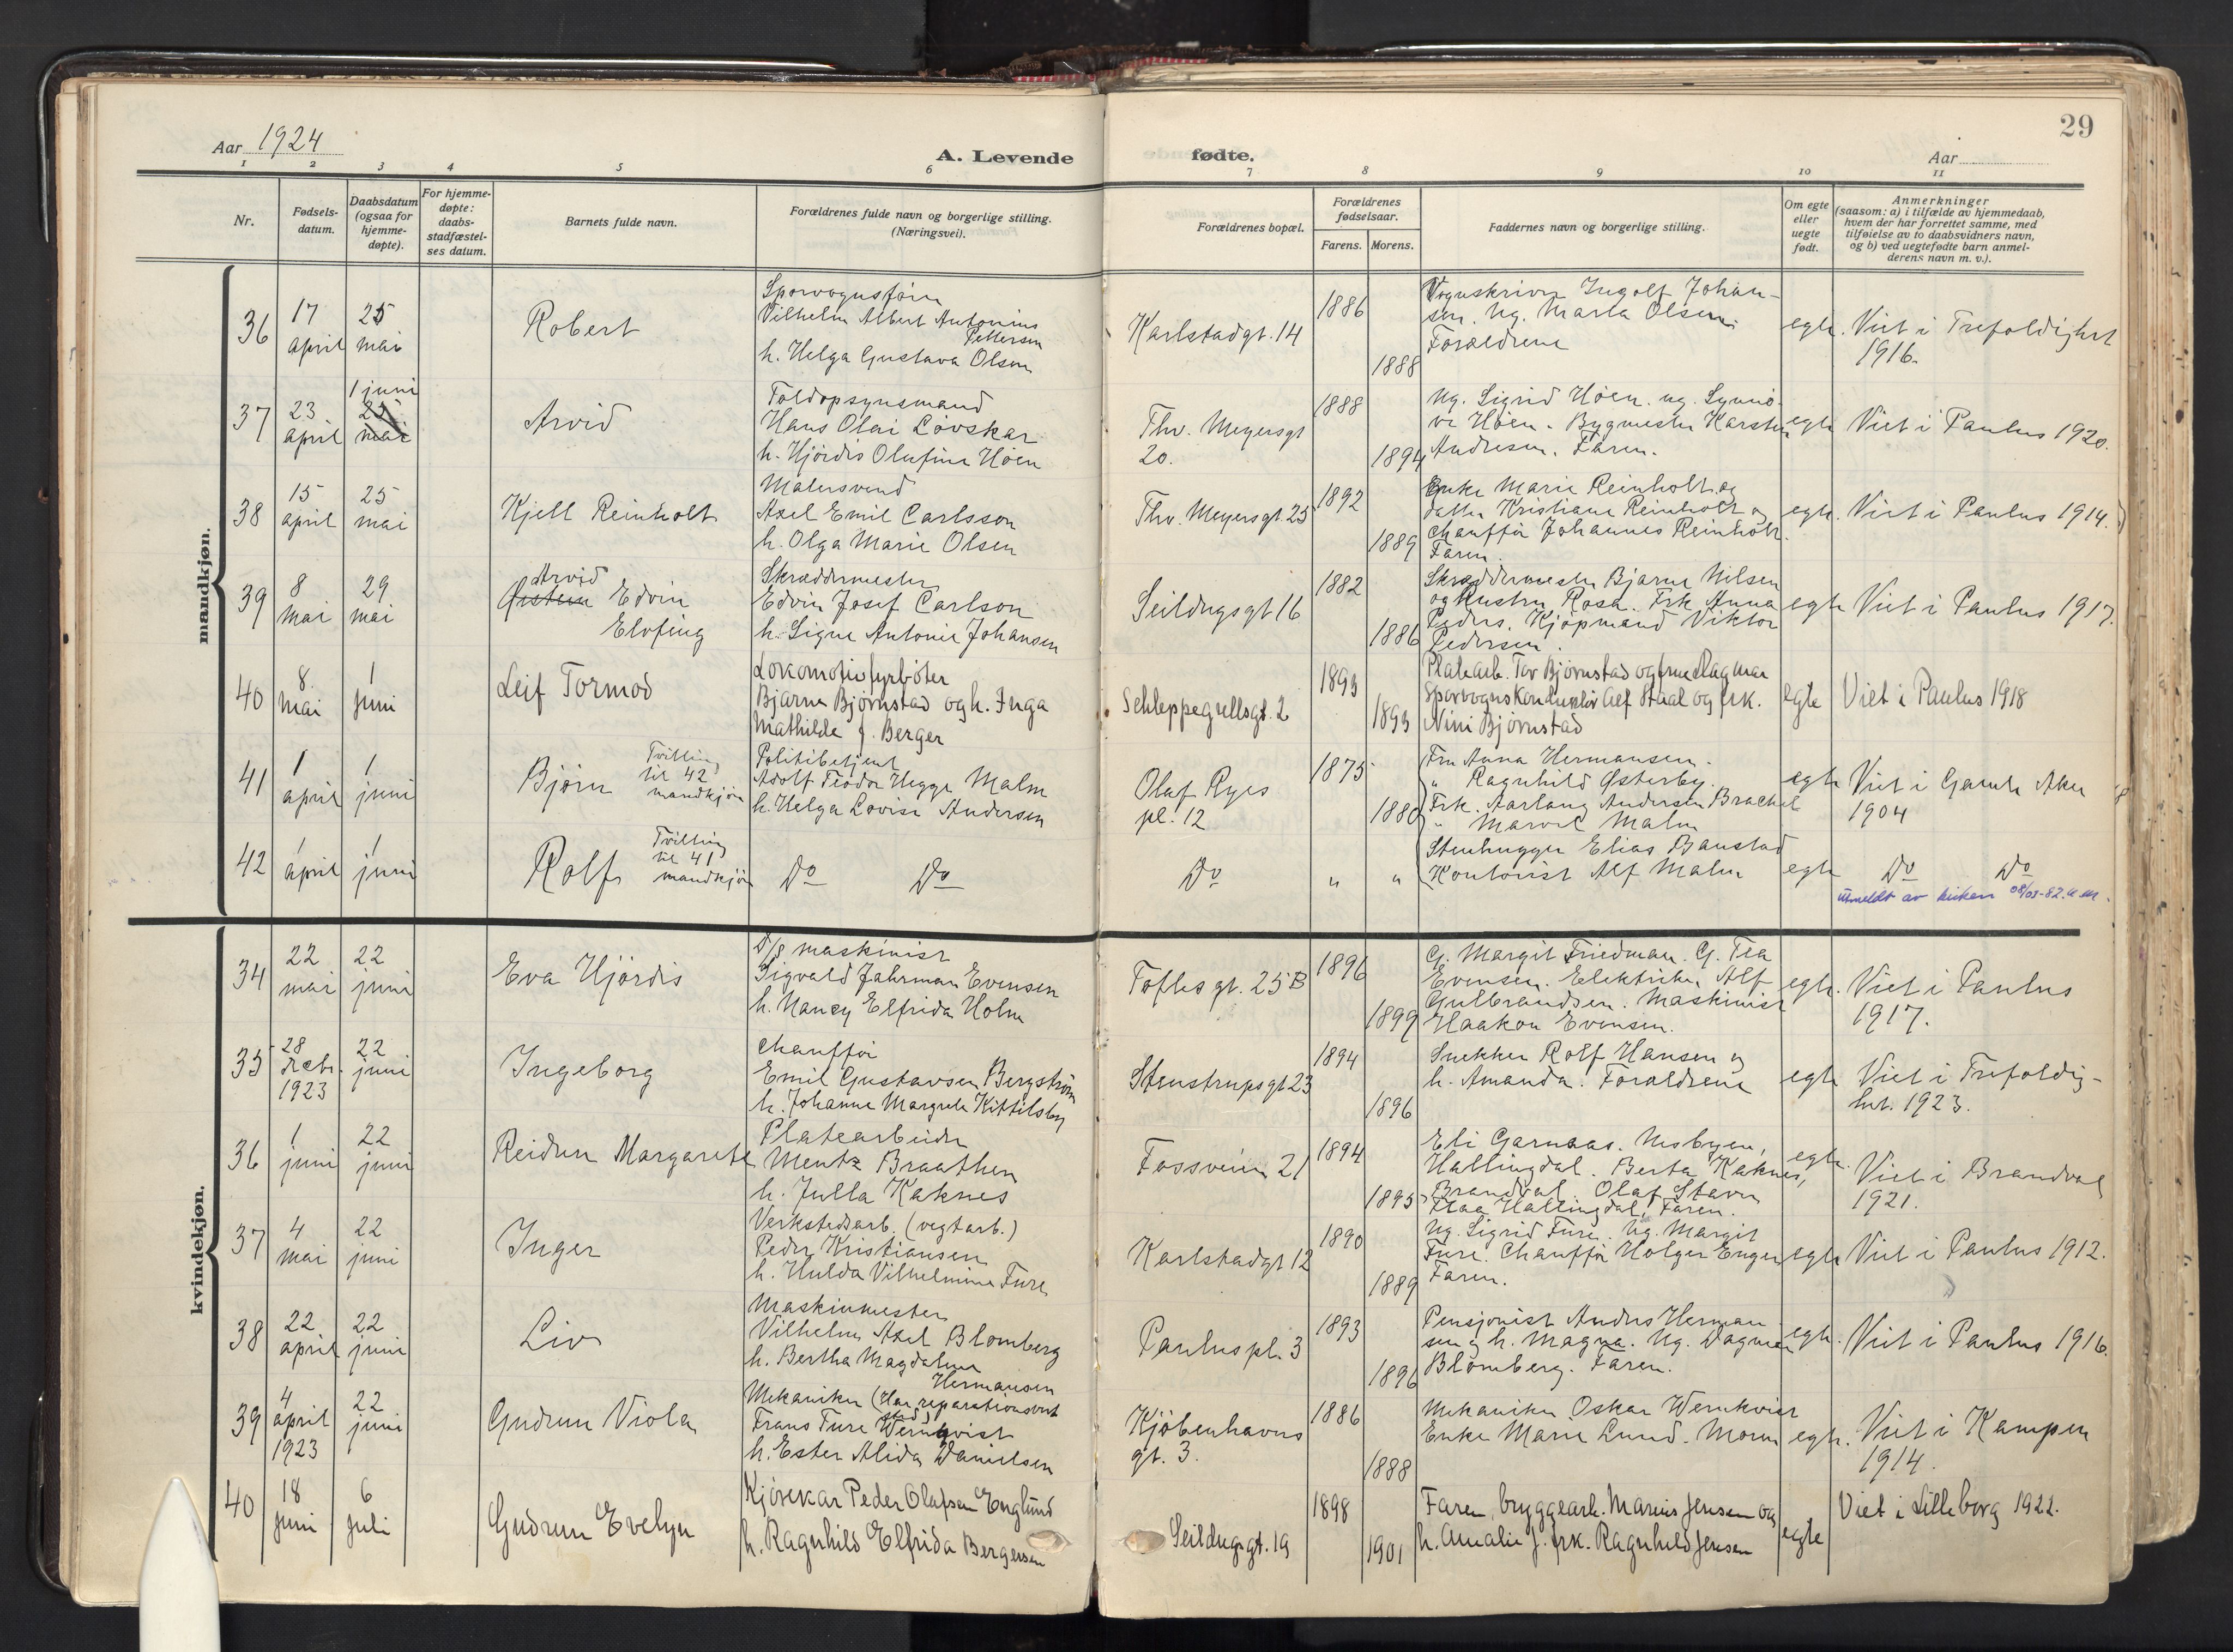 Aar 1924
A. Levende fødte.
29
Aar
1 2 3 4 5 6 7 8 9 10 11
Nr.
Fødsels-
datum.
Daabsdatum
(ogsaa for
hjemme-
døpte).
For hjemme-
døpte:
daabs-
stadfæstel-
ses datum.
Barnets fulde navn.
Forældrenes fulde navn og borgerlige stilling.
(Næringsvei).
Forældrenes bopæl.
Forældrenes
fødselsaar.
Farens. Morens.
Faddernes navn og borgerlige stilling.
Om egte
eller
uegte
født.
Anmerkninger
(saasom: a) i tilfælde av hjemmedaab,
hvem der har forrettet samme, med
tilføielse av to daabsvidners navn,
og b) ved uegtefødte barn anmel-
derens navn m. v.).
mandkjøn.
36
17
april
25
mai
Robert
Sporvognsfører
Vilhelm Albert Antonius
Pettersen
h. Helga Gustava Olsen
Karlstadgt. 14
1886
1888
Vognskriver Ingolf Johan-
sen. Ug. Marta Olsen.
Forældrene
egte.
Viet i Trefoldighet
1916.
37
23
april
1 juni
25
mai
Arvid
Toldopsynsmand
Hans Olai Løvskar
h. Hjørdis Olufine Høen
Thv. Meyersgt
20.
1888
1894
Ug. Sigrid Høen. ug. Synnø-
ve Høen. Bygmester Karsten
Andresen. Faren.
egte
Viet i Paulus 1920.
38
15
april
25
mai
Kjell Reinholt
Malersvend
Axel Emil Carlsson
h. Olga Marie Olsen
Thv. Meyersgt. 25
1892
1889
Enke Marie Reinholt og
datter Kristiane Reinholt og
chauffør Johannes Reinholt.
Faren.
egte.
Viet i Paulus 1914.
39
8
mai
29
mai
Arvid
Øistein Edvin
Elofing
Skræddermester
Edvin Josef Carlson
h. Signe Antonie Johansen
Seildugsgt 16
1882
1886
Skræddermester Bjarne Nilsen
og hustru Rosa. Frk Anna
Peders. Kjøpmand Viktor
Pedersen.
egte
Viet i Paulus 1917.
40
8.
mai
1
juni
Leif Tormod
Lokomotivfyrbøter
Bjarne Bjørnstad og h. Inga
Mathilde f. Berger
Schleppegrellsgt. 2
1893
1893
Platearb. Tor Bjørnstad og frue Dagmar
Sporvognskonduktør Alf Staal og frk.
Nini Bjørnstad
egte
Viet i Paulus 1918
41
1
april
1
juni
Bjørn
Tvilling
til 42
mandkjøn
Politibetjent
Adolf Teodor Hegge Malm
h. Helga Lovise Andersen
Olaf Ryes
pl. 12
1875
1880
Fru Anna Hermansen.
" Ragnhild Østerby.
Frk. Aarlaug Andersen Brachel
" Marvel Malm
egte
Viet i Gamle Aker
1904
42
1
april
1
juni
Rolf
Tvilling
til 41
mandkjøn
Do Do
Do
" "
Stenhugger Elias Banstad
Kontorist Alf Malm
egte
Do Do
Utmeldt av kirken 08/03-82.
kvindekjøn.
34
22
mai
22
juni
Eva Hjørdis
D/S maskinist
Sigvald Jahrman Evensen
h. Nancy Elfrida Holm
Toftesgt. 25B
1896
1899
G. Margit Friedman. G. Tea
Evensen. Elektriker Alf
Gulbrandsen. Maskinist
Haakon Evensen.
egte.
Viet i Paulus
1917.
35
28
Febr.
1923
22
juni
Ingeborg
Chauffør
Emil Gustavsen Bergstrøm
h. Johanne Margrete Kittilsby
Stenstrupsgt 23
1894
1896
Snekker Rolf Hansen og
h. Amanda. Forældrene
egte
Viet i Trefoldig-
het. 1923.
36
1
juni
22
juni
Reidun Margarete
Platearbeider
Mentz Braathen
h. Julla Kaknes
Fossveien 21
1894
1895
Eli Garnaas. Nesbyen,
Hallingdal. Berta Kaknes,
Brandval. Olaf Stavn
Flaa Hallingdal, Faren.
egte.
Viet i Brandval
1921.
37
4
mai
22
juni
Inger
Verkstedsarb. (vegtarb.)
Peder Kristiansen
h. Hulda Vilhelmine Fure
Karlstadgt 12
1890
1889
Ug. Sigrid Fure. Ug. Margit
Fure. Chauffør Holger Enger
Faren.
egte
Viet i Paulus 1912.
38
22
april
22
juni
Liv
Maskinmester
Vilhelm Axel Blomberg
h. Bertha Magdalene
Hermansen
Paulus pl. 3
1893
1896
Pensjonist Anders Herman-
sen og h. Magna. Ug. Dagmar
Blomberg. Faren.
egte.
Viet i Paulus 1916.
39
4
april
1923
22
juni
Gudrun Viola
Mekaniker (Har reparationsverk
sted)
Frans Ture Wernqvist
h. Ester Alida Danielsen
Kjøbenhavns
gt. 3.
1886
1888
Mekaniker Oskar Wernkvist
Enke Marie Lund. Moren
egte.
Viet i Kampen
1914.
40
18
juni
6
juli
Gudrun Evelyn
Kjørekar Peder Olafsen Englund
h. Ragnhild Elfrida Bergersen
Seildugsgt. 19
1898
1901
Faren, bryggearb. Marius Jensen og
h. Amalie J. frk. Ragnhild Jensen
egte
Viet i Lilleborg 1922.